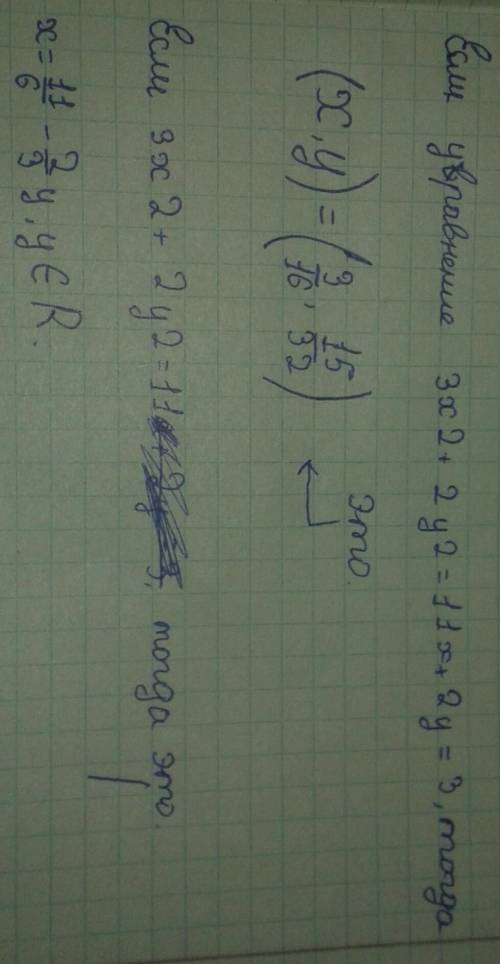 Если уравнение 3x2+2y2=11x+2y=3, тогда
это.
(x,y)=(3/16, 15/32)
Если 3x2+2y2=11, тогда это.
x=11/6-2/3y, y∈R.